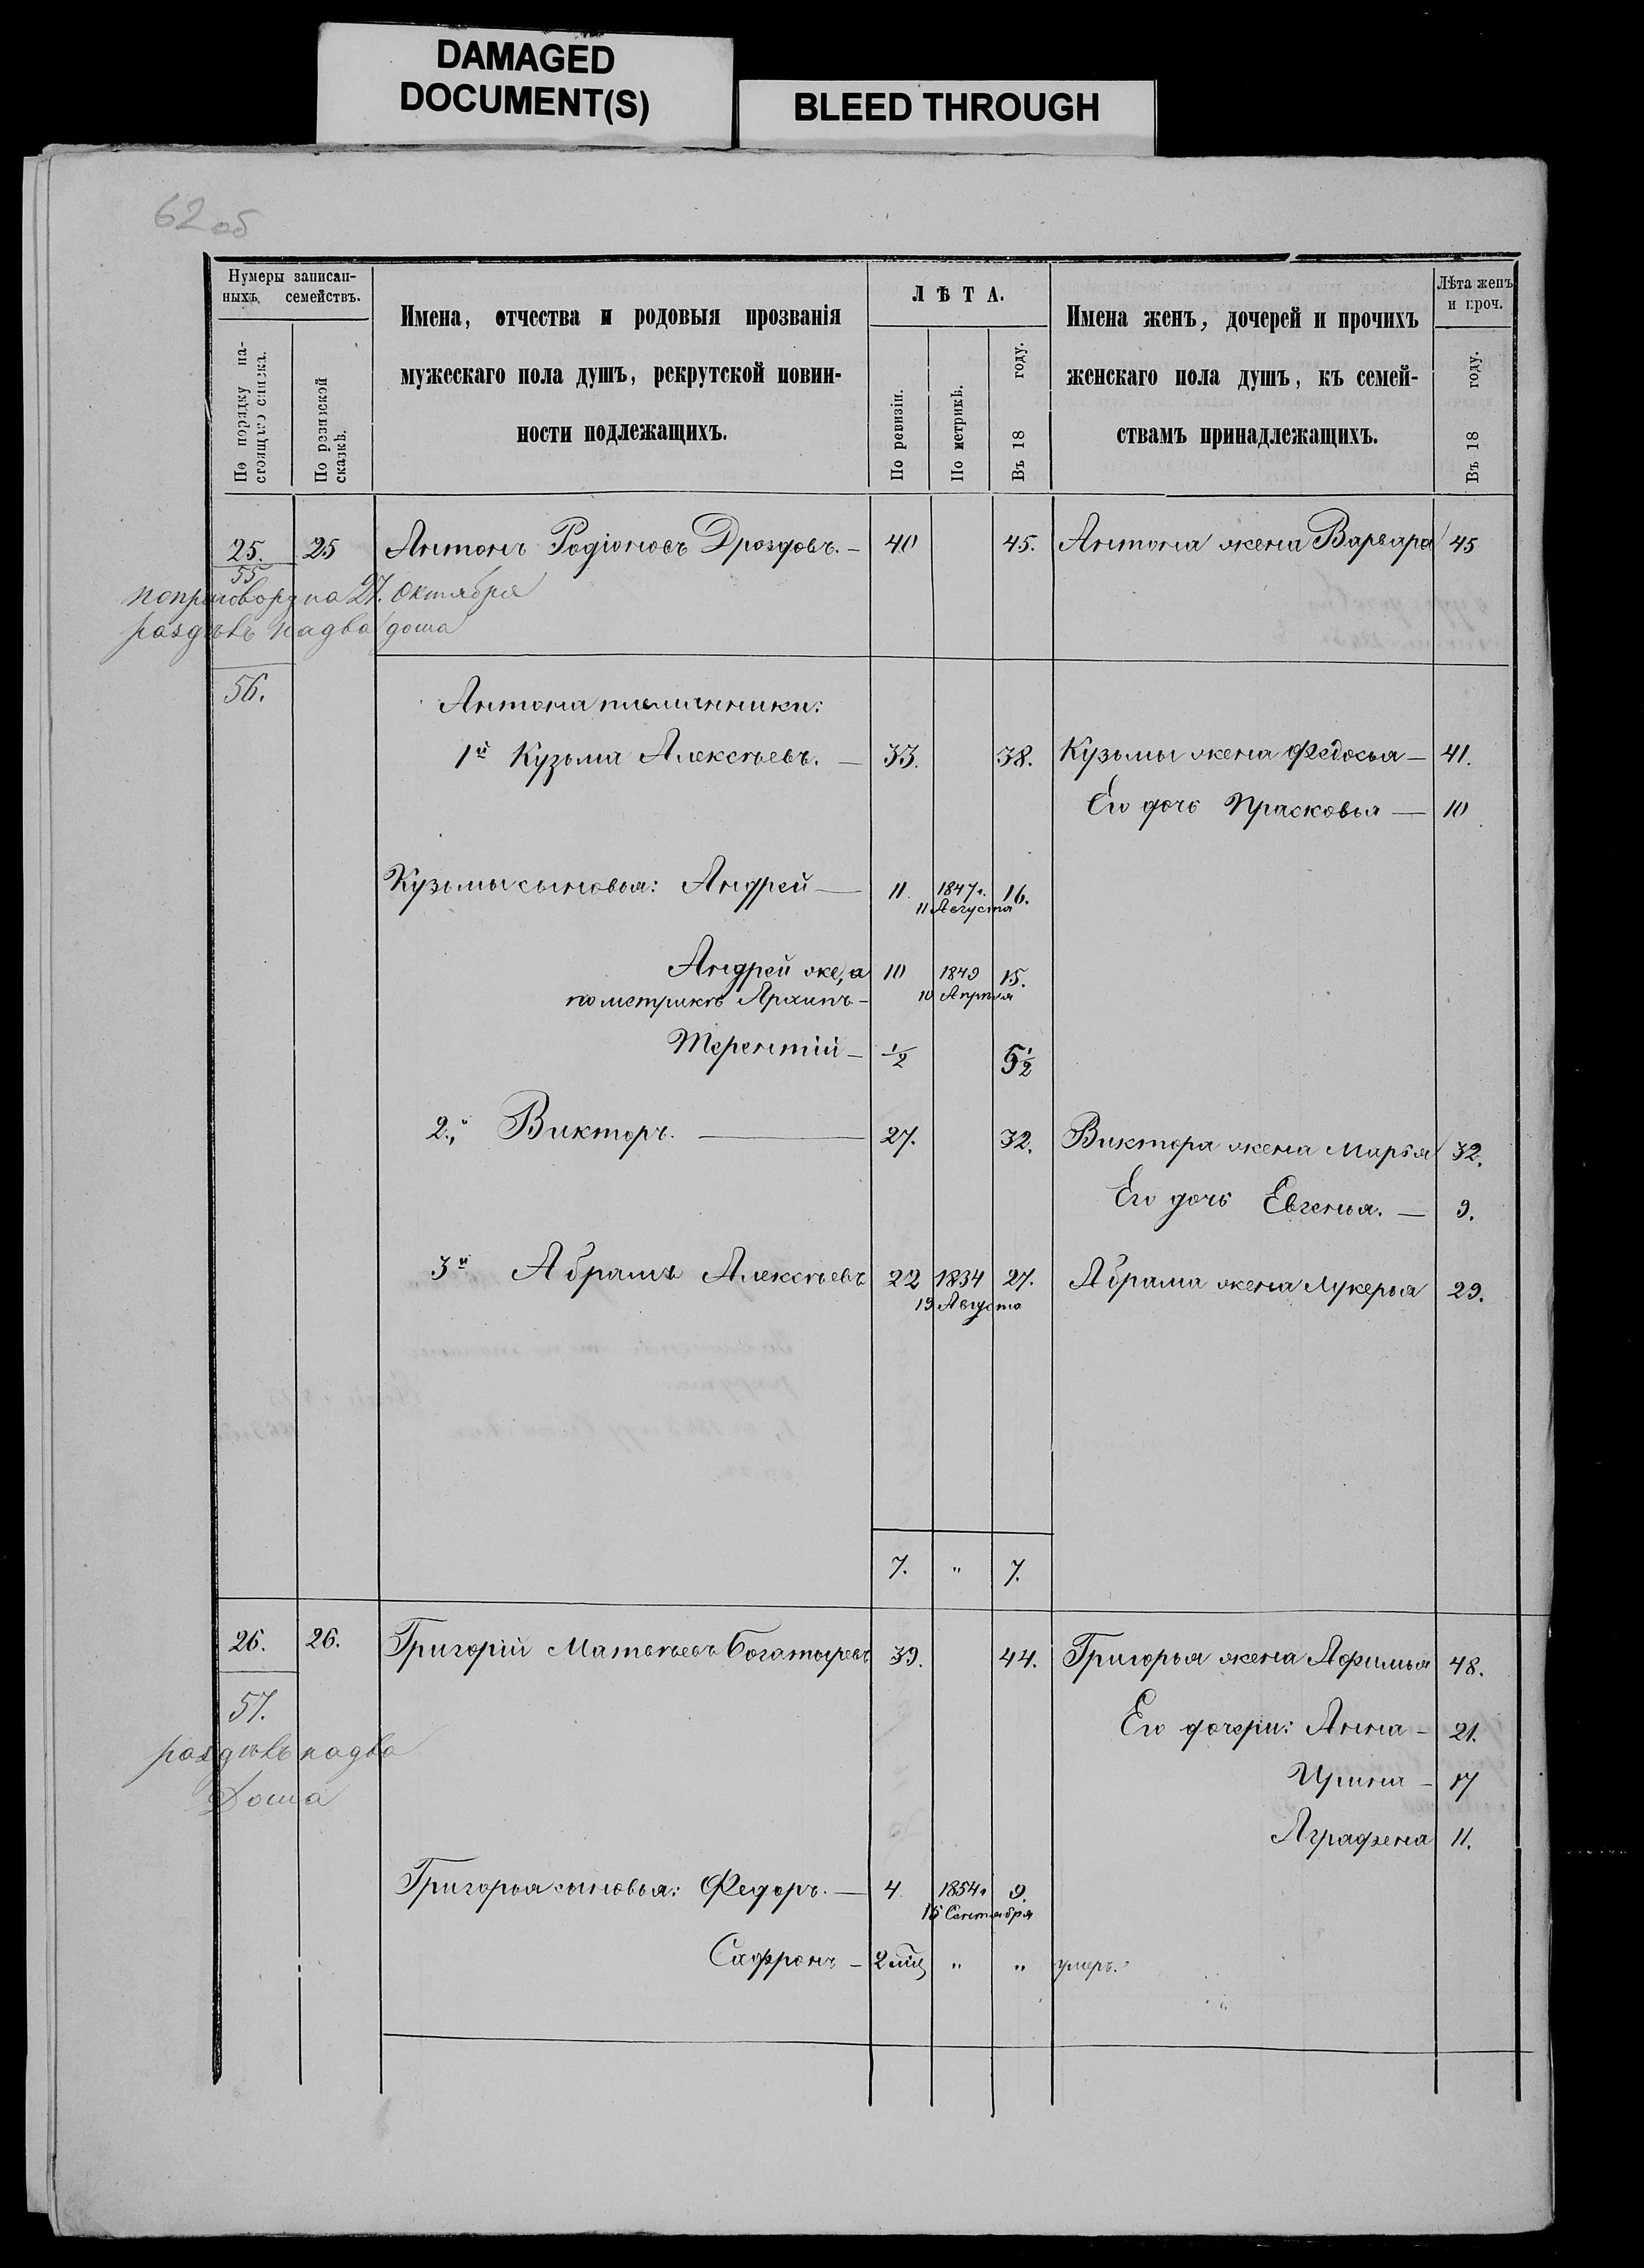 DAMAGED
DOCUMENT(S)
BLEED THROUGH
62 об
Нумеры записан-
ныхъ семействъ.
По порядку на-
стоящаго списка.
По ревизской
сказкѣ.
Имена, отчества и родовыя прозванія
мужескаго пола душъ, рекрутской повин-
ности подлежащихъ.
ЛѢТА.
По ревизіи.
По метрикѣ.
Въ 18 году.
Имена женъ, дочерей и прочихъ
женскаго пола душъ, къ семей-
ствамъ принадлежащихъ.
Лѣта женъ
и проч.
Въ 18 году.
25. 25 Антонъ Родіоновъ Дроздовъ. — 40 45. Антона жена Варвара 45
55
поприговору на 27. Октября
раздѣлъ надва дома
56.
Антона племянники:
1й Кузьма Алексѣевъ. — 33. 38. Кузьмы жена Федосья — 41.
Его дочь Прасковья — 10
Кузьмы сыновья: Андрей — 11. 1847г. 16.
11 Августа
Андрей же, а 10 1849 15.
по метрикѣ Архипъ — 10 Апрѣля
Терентій — 1/2 5 1/2
2.й Викторъ. — 27. 32. Виктора жена Марья 32.
Его дочь Евгенья. — 9.
3й Абрамъ Алексѣевъ 22 1834 27. Абрама жена Лукерья 29.
19 Августа
7. " 7.
26. 26. Григорій Матвѣевъ Богатыревъ 39. 44. Григорья жена Афимья 48.
57.
Его дочери: Анна — 21.
раздѣлъ надва
Ирина — 17
Дома
Аграфена 11.
Григорья сыновья: Федоръ. — 4 1854г 9.
15 Сентября
Сафронъ — 2 мѣс " " умеръ.